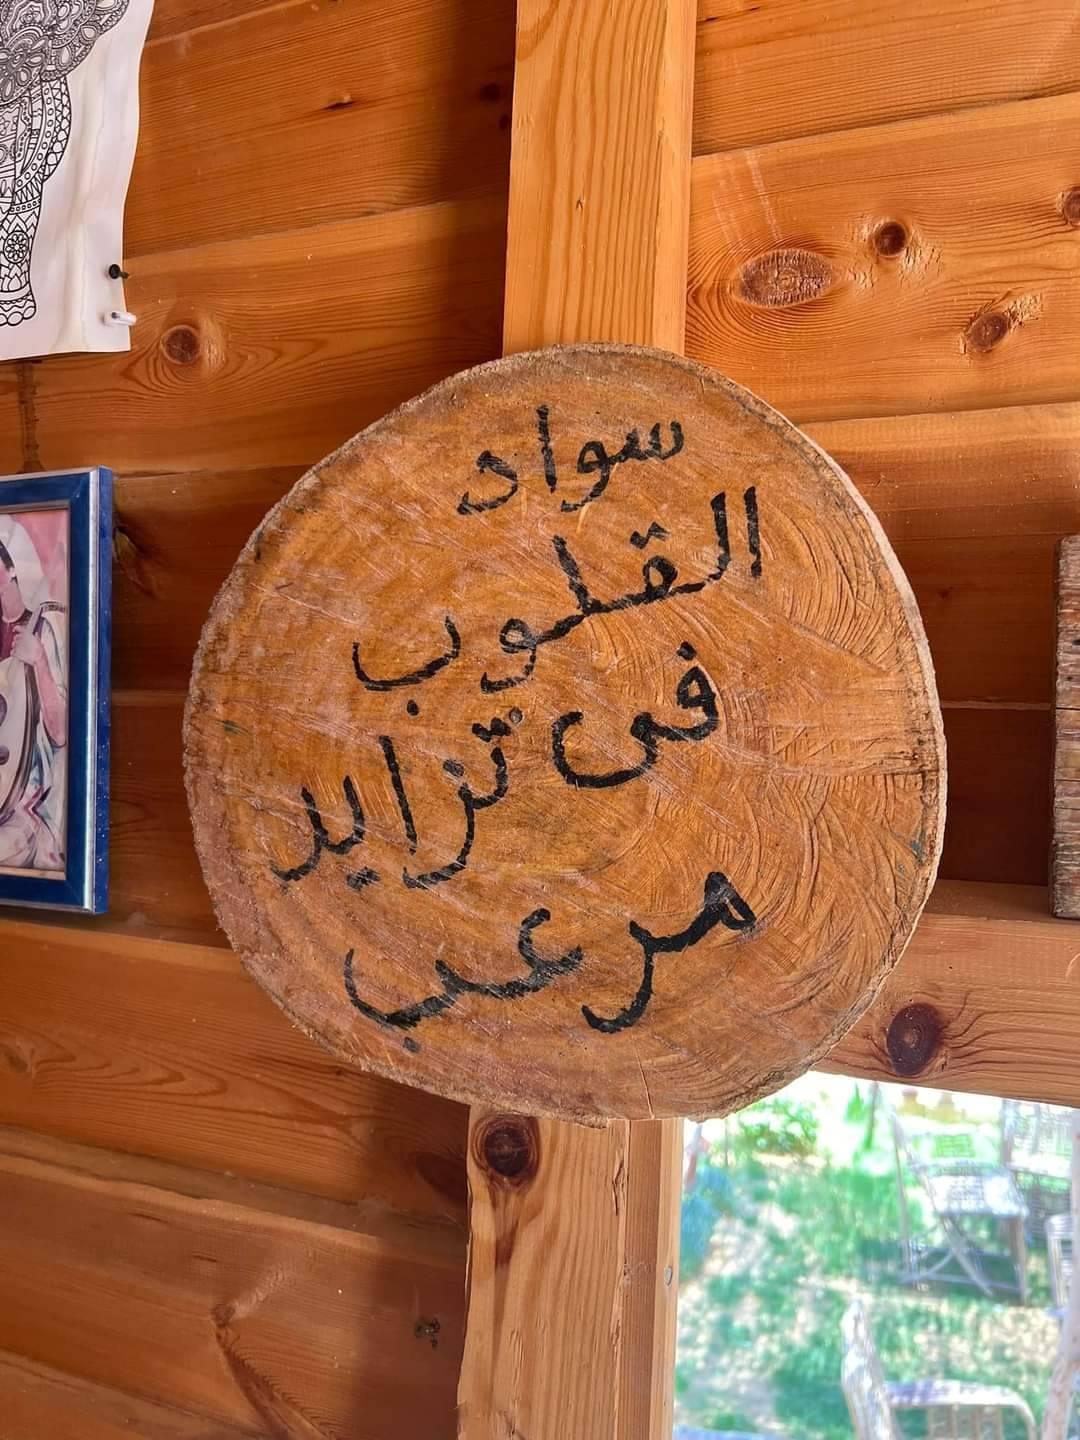 سواد
القلوب
فى تزايد
مرعب